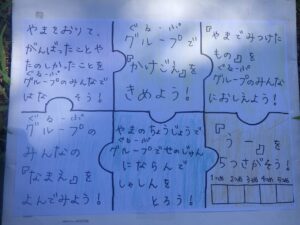 やまをおりて、
がんばったことや
たのしかったことを
ぐるーぷ
グループのみんなで
はなそう！
ぐるーぷ
グループで
『かけごえ』を
きめよう！
『やまでみつけた
もの』を
ぐるーぷ
グループのみんな
におしえよう！
ぐるーぷ
グループの
みんなの
『なまえ』を
よんでみよう！
やまのちょうじょうで
ぐるーぷ
グループでせのじゅん
にならんで
しゃしんを
とろう！
『うー』を
5つさがそう！
1つめ 2つめ 3つめ 4つめ 5つめ